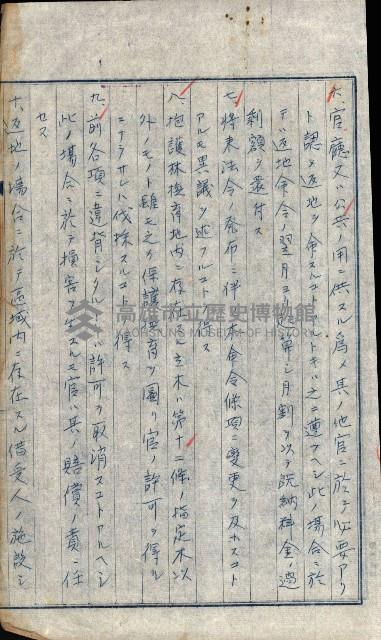 六、官廳又ハ公共ノ用ニ供スル為メ其ノ他官ニ於テ必要アリ
ト認メ返地ヲ命スルコトアルトキハ之ニ遵フヘシ此ノ場合ニ於
テハ返地命令ノ翌月ヨリ起算シ月割ヲ以テ既納料金ノ過
剰額ヲ還付ス
七、將来法令ノ発布ニ伴ヒ本命令條項ニ變更ヲ及ホスコト
アルモ異議ヲ述フルコトヲ得ス
八、抱護林撫育地内ニ存在スル立木ハ第十二條ノ指定木以
外ノモノト雖モ之ヲ保護撫育ヲ圖リ官ノ許可ヲ得ル
ニアラサレハ伐採スルコトヲ得ス
九、前各項ニ違背シタルトキハ許可ヲ取消スコトアルヘシ
此ノ場合ニ於テ損害ヲ生スルモ官ハ其ノ賠償ノ責ニ任
セス
十、返地ノ場合ニ於テ區域内ニ存在スル借受人ノ施設シ
高雄市立歷史博物館
KAOHSIUNG MUSEUM OF HISTORY